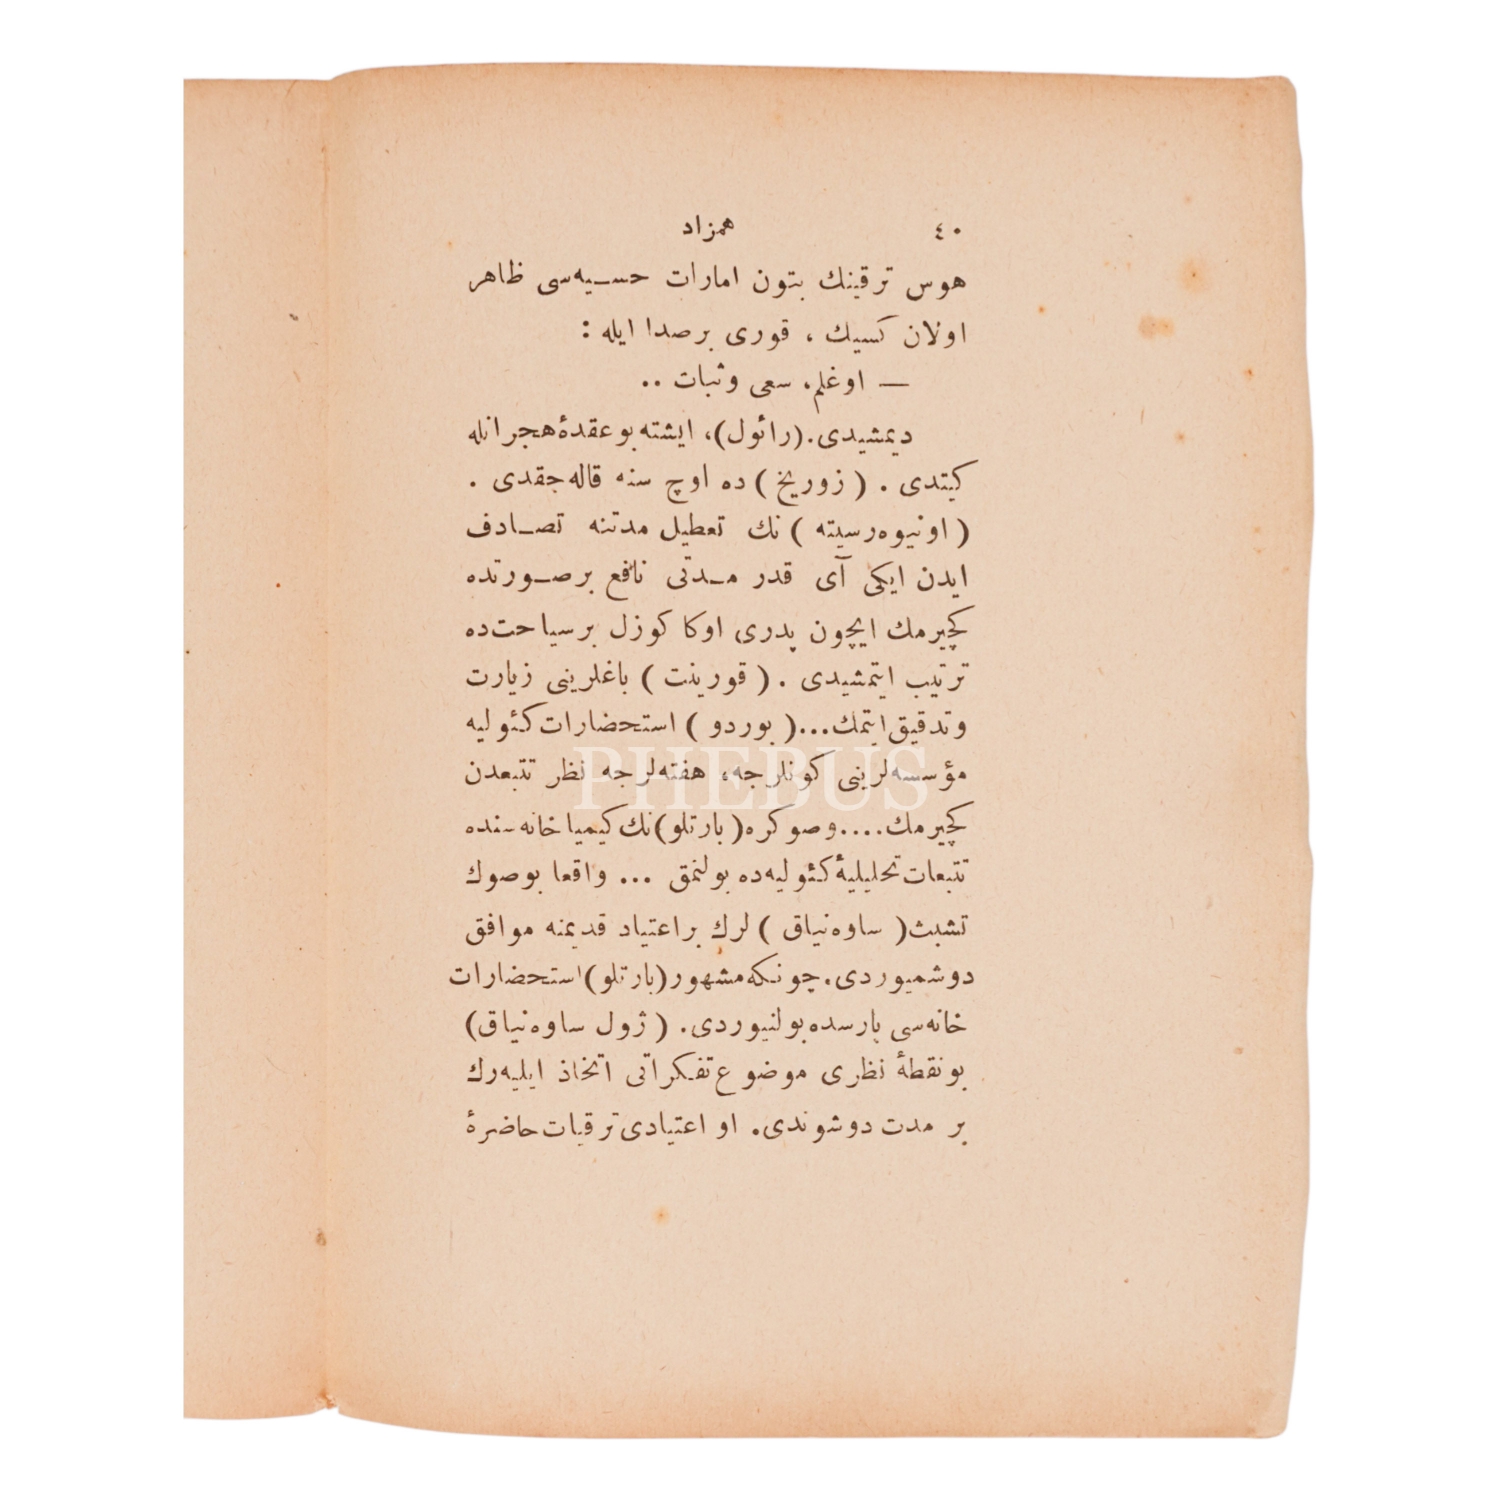 ٤٠ همزاد
هوس ترقینك بتون امارات حسیه‌سی ظاهر
اولان كسیك ، قوری برصدا ایله :
— اوغلم، سعی وثبات ..
دیمشیدی. (رائول)، ایشته بو عقدۀ هجرانله
كیتدی . ( زوریخ ) ده اوچ سنه قاله‌جقدی .
( اونیوه‌رسیته ) نك تعطیل مدتنه تصادف
ایدن ایكی آی قدر مدتی نافع برصورتده
كچیرمك ایچون پدری اوكا كوزل برسیاحت‌ده
ترتیب ایتمشیدی . ( قورینت ) باغلرینی زیارت
وتدقیق ایتمك...( بوردو ) استحضارات كئولیه
مؤسسه‌لرینی كونلرجه، هفته‌لرجه نظر تتبعدن
PHEBUS
كچیرمك....وصوكره( بارتلو)نك كیمیاخانه‌سنده
تتبعات تحلیلیۀ كئولیه‌ده بولنمق ... واقعا بوصوك
تشبث( ساوه‌نیاق ) لرك براعتیاد قدیمنه موافق
دوشمیوردی. چونكه مشهور(بارتلو)استحضارات
خانه‌سی پارسده بولنیوردی. ( ژول ساوه‌نیاق)
بونقطۀ نظری موضوع تفكراتی اتخاذ ایلیه‌رك
بر مدت دوشوندی. او اعتیادی ترقیات حاضرۀ